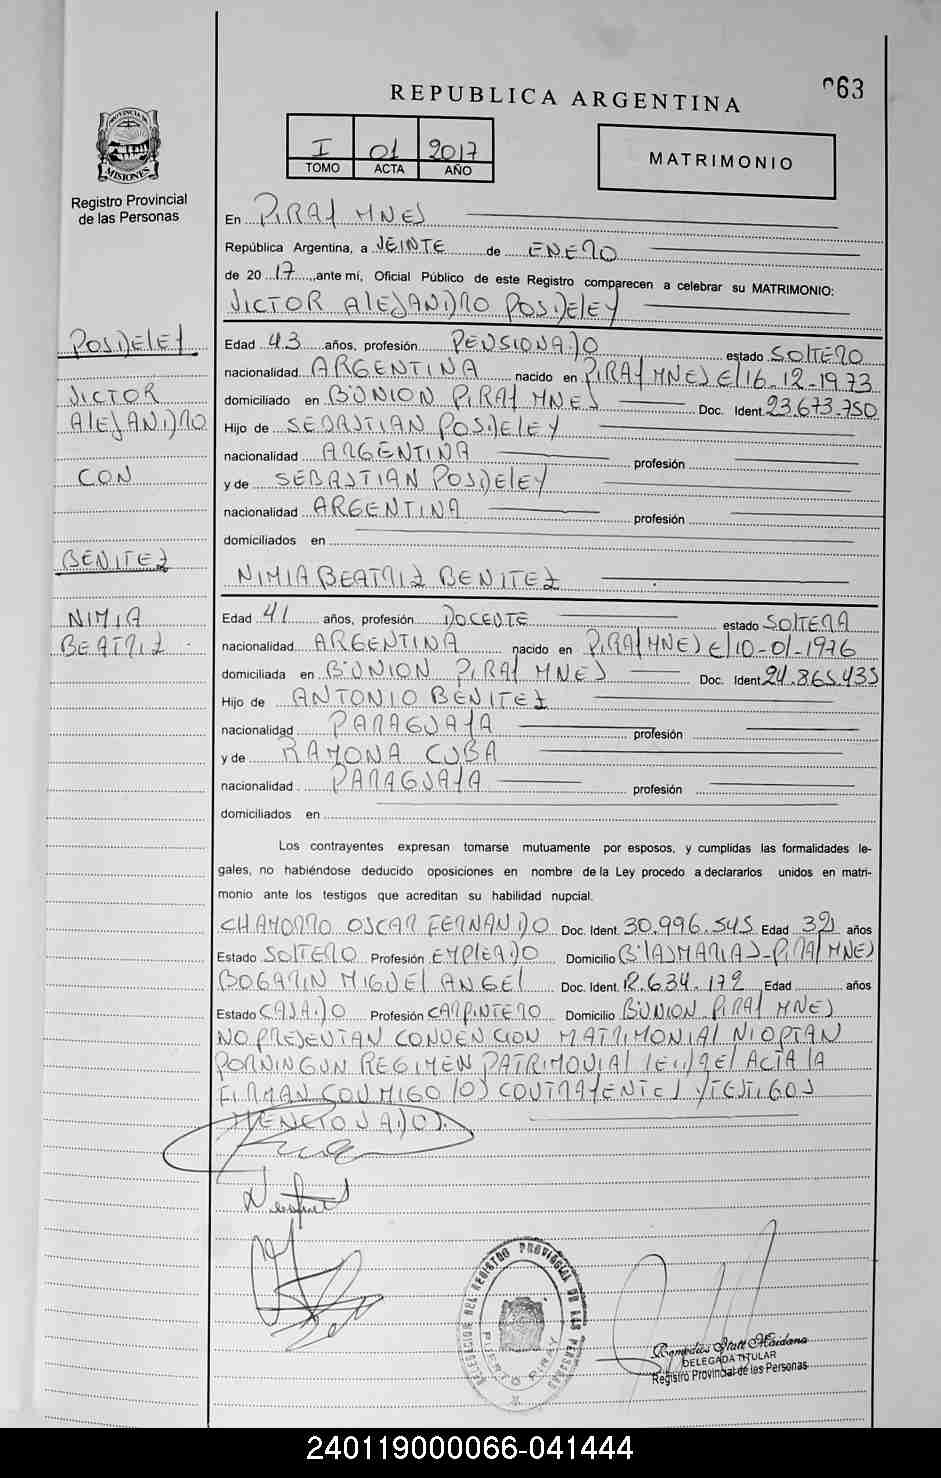 063
REPUBLICA ARGENTINA
PROVINCIA DE
MISIONES
Registro Provincial
de las Personas
I 01 2017
TOMO ACTA AÑO
MATRIMONIO
En PIRAY MNES
República Argentina, a VEINTE de ENERO
de 20 17, ante mí, Oficial Público de este Registro comparecen a celebrar su MATRIMONIO:
VICTOR ALEJANDRO POSDELEY
POSDELEY
VICTOR
ALEJANDRO
CON
BENITEZ
NIMIA
BEATRIZ
Edad 43 años, profesión PENSIONADO estado SOLTERO
nacionalidad ARGENTINA nacido en PIRAY MNES El 16-12-1973
domiciliado en B°UNION PIRAY MNES Doc. Ident. 23.673.750
Hijo de SEBASTIAN POSDELEY
nacionalidad ARGENTINA profesión
y de SEBASTIAN POSDELEY
nacionalidad ARGENTINA profesión
domiciliados en
NIMIA BEATRIZ BENITEZ
Edad 41 años, profesión DOCENTE estado SOLTERA
nacionalidad ARGENTINA nacido en PIRAY MNES El 10-01-1976
domiciliada en B°UNION PIRAY MNES Doc. Ident. 24.865.435
Hijo de ANTONIO BENITEZ
nacionalidad PARAGUAYA profesión
y de RAMONA CUBA
nacionalidad PARAGUAYA profesión
domiciliados en
Los contrayentes expresan tomarse mutuamente por esposos, y cumplidas las formalidades le-
gales, no habiéndose deducido oposiciones en nombre de la Ley procedo a declararlos unidos en matri-
monio ante los testigos que acreditan su habilidad nupcial.
CHAMORRO OSCAR FERNANDO Doc. Ident. 30.996.545 Edad 32 años
Estado SOLTERO Profesión EMPLEADO Domicilio B°LAS MARIAS-PIRAY MNES
BOGARIN MIGUEL ANGEL Doc. Ident. Edad años
Estado CASADO Profesión CARPINTERO Domicilio B°UNION PIRAY MNES
NO PRESENTAN CONVENCION MATRIMONIAL NI OPTAN
POR NINGUN REGIMEN PATRIMONIAL EL ACTA LA
FIRMAN CONMIGO LOS CONTRAYENTES Y TESTIGOS
MENCIONADOS.
DELEGACION DEL REGISTRO PROVINCIAL DE LAS PERSONAS
Remedios Statt Maidana
DELEGADA TITULAR
Registro Provincial de las Personas
240119000066-041444